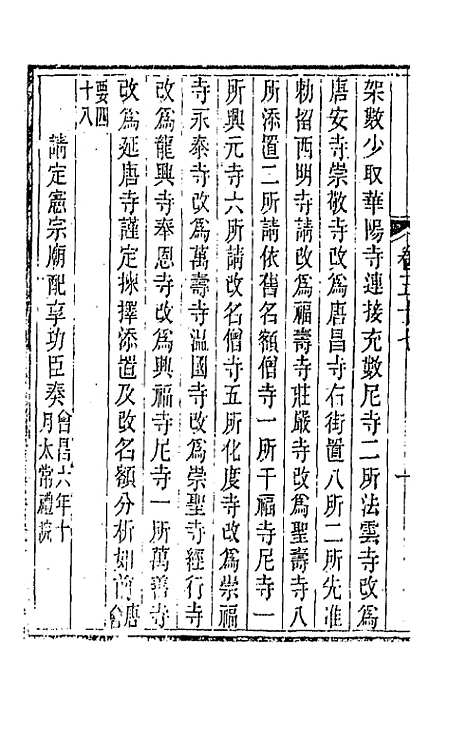 架數少取華陽寺連接充數尼寺二所法雲寺改爲
唐安寺崇敬寺改爲唐昌寺右街置八所二所先准
勅留西明寺請改爲福壽寺莊嚴寺改爲聖壽寺八
所添置二所請依舊名額僧寺一所千福寺尼寺一
所興元寺六所請改名僧寺五所化度寺改爲崇福
寺永泰寺改爲萬壽寺溫國寺改爲崇聖寺經行寺
改爲龍興寺奉恩寺改爲興福寺尼寺一所萬善寺
改爲延唐寺謹定揀擇添置及改名額分析如前唐會
要四十八
請定憲宗廟配享功臣奏會昌六年十月太常禮院
卷五十七